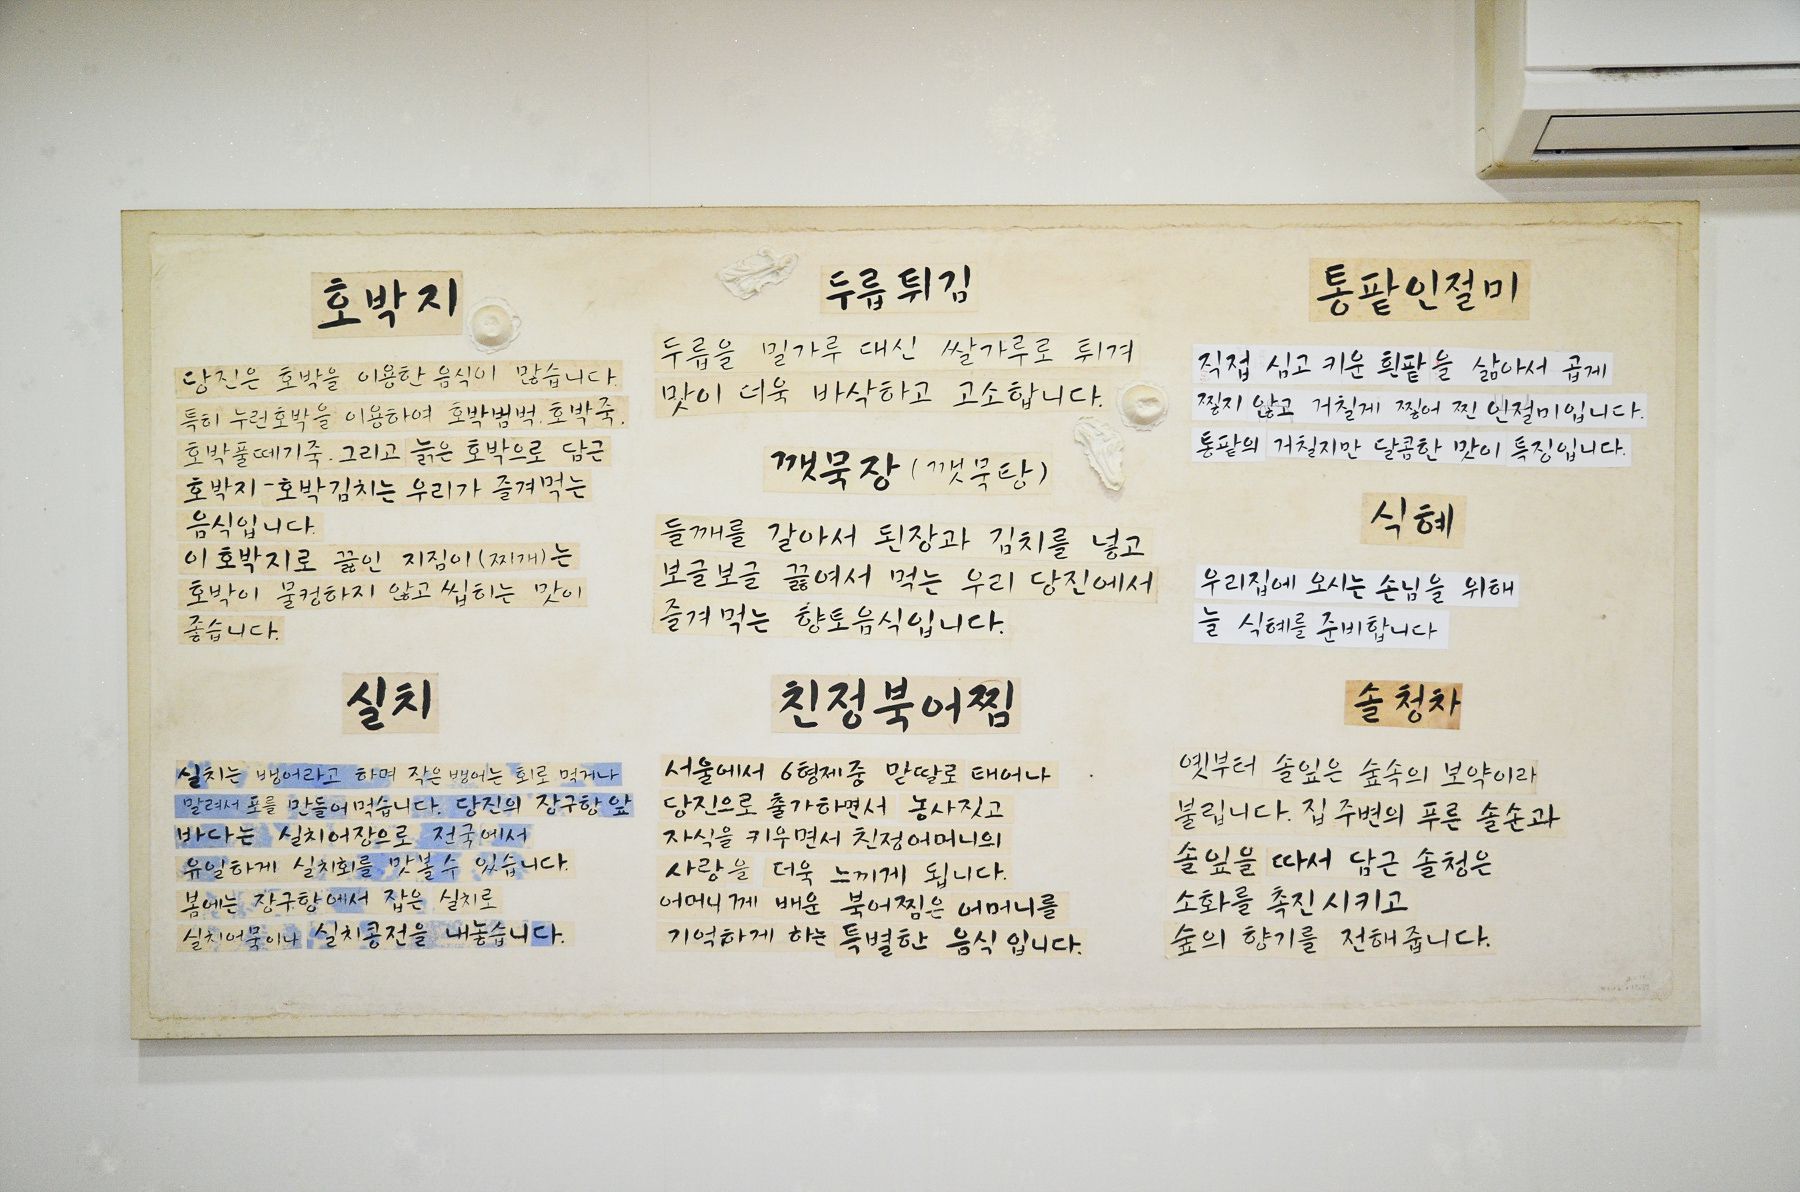 호박지
당진은 호박을 이용한 음식이 많습니다.
특히 누런호박을 이용하여 호박범벅. 호박죽.
호박풀떼기죽. 그리고 늙은 호박으로 담근
호박지-호박김치는 우리가 즐겨먹는
음식입니다.
이 호박지로 끓인 지짐이(찌개)는
호박이 물컹하지 않고 씹히는 맛이
좋습니다.
실치
실치는 뱅어라고 하며 작은 뱅어는 회로 먹거나
말려서 포를 만들어먹습니다. 당진의 장구항 앞
바다는 실치어장으로 전국에서
유일하게 실치회를 맛볼 수 있습니다.
봄에는 장구항에서 잡은 실치로
실치어묵이나 실치콩전을 내놓습니다.
두릅튀김
두릅을 밀가루 대신 쌀가루로 튀겨
맛이 더욱 바삭하고 고소합니다.
깻묵장 (깻묵탕)
들깨를 갈아서 된장과 김치를 넣고
보글보글 끓여서 먹는 우리 당진에서
즐겨 먹는 향토음식입니다.
친정북어찜
서울에서 6형제중 맏딸로 태어나
당진으로 출가하면서 농사짓고
자식을 키우면서 친정어머니의
사랑을 더욱 느끼게 됩니다.
어머니께 배운 북어찜은 어머니를
기억하게 하는 특별한 음식 입니다.
통팥인절미
직접 심고 키운 흰팥을 삶아서 곱게
찧지 않고 거칠게 찧어 찐 인절미입니다.
통팥의 거칠지만 달콤한 맛이 특징입니다.
식혜
우리집에 오시는 손님을 위해
늘 식혜를 준비합니다
솔청차
옛부터 솔잎은 숲속의 보약이라
불립니다. 집 주변의 푸른 솔순과
솔잎을 따서 담근 솔청은
소화를 촉진시키고
숲의 향기를 전해줍니다.